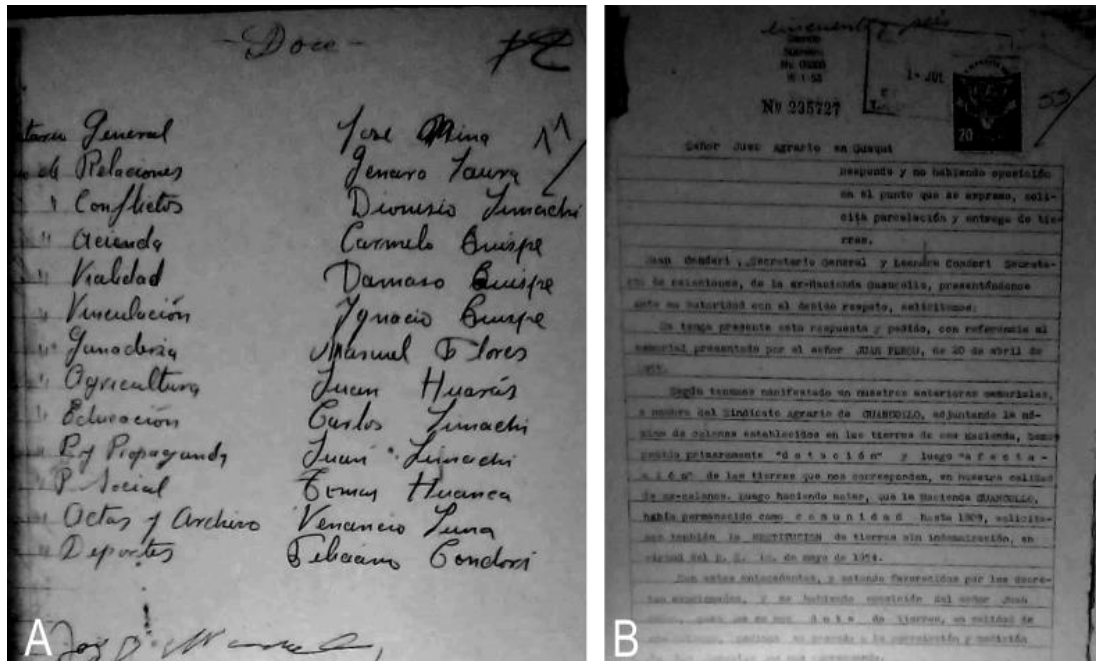 - Doce -
12
General José Mina 11
de Relaciones Genaro Laura
" Conflictos Dionisio Limachi
" Acienda Carmelo Quispe
" Vialidad Damaso Quispe
" Vinculación Ygnacio Quispe
" Ganaderia Manuel Flores
" Agricultura Juan Huarás
" Educación Carlos Limachi
" P. y Propaganda Juan Limachi
" P. Social Tomas Huanca
" Actas y Archivo Venancio Luna
" Deportes Feliciano Condori
A
cincuenta y seis
1- JUL
Nº 235727
20
55
Señor Juez Agrario en Guaqui
Responde y no habiendo oposición
en el punto que se expresa, soli-
cita parcelación y entrega de tie-
rras.
Juan Condori, Secretario General y Leandro Condori Secreta-
rio de Relaciones, de la ex-Hacienda Guancollo, presentándonos
ante su autoridad con el debido respeto, solicitamos:
Se tenga presente esta respuesta y pedido, con referencia al
memorial presentado por el señor JUAN PEROU, de 20 de abril de
Según tenemos manifestado en nuestros anteriores memoriales,
a nombre del Sindicato Agrario de GUANCOLLO, adjuntando la nó-
mina de colonos establecidos en las tierras de esa Hacienda, hemos
pedido primeramente "d o t a c i ó n" y luego "a f e c t a -
c i ó n" de las tierras que nos corresponden, en nuestra calidad
de ex-colonos. Luego haciendo notar, que la Hacienda GUANCOLLO,
había permanecido como c o m u n i d a d hasta 1909, solicita-
mos también la RESTITUCION de tierras sin indemnización, en
virtud del D. S. de mayo de 1954.
Con estos antecedentes, y estando favorecidos por los decre-
tos mencionados, y no habiendo oposición del señor Juan
para que se nos d o t e de tierras, en calidad de
B